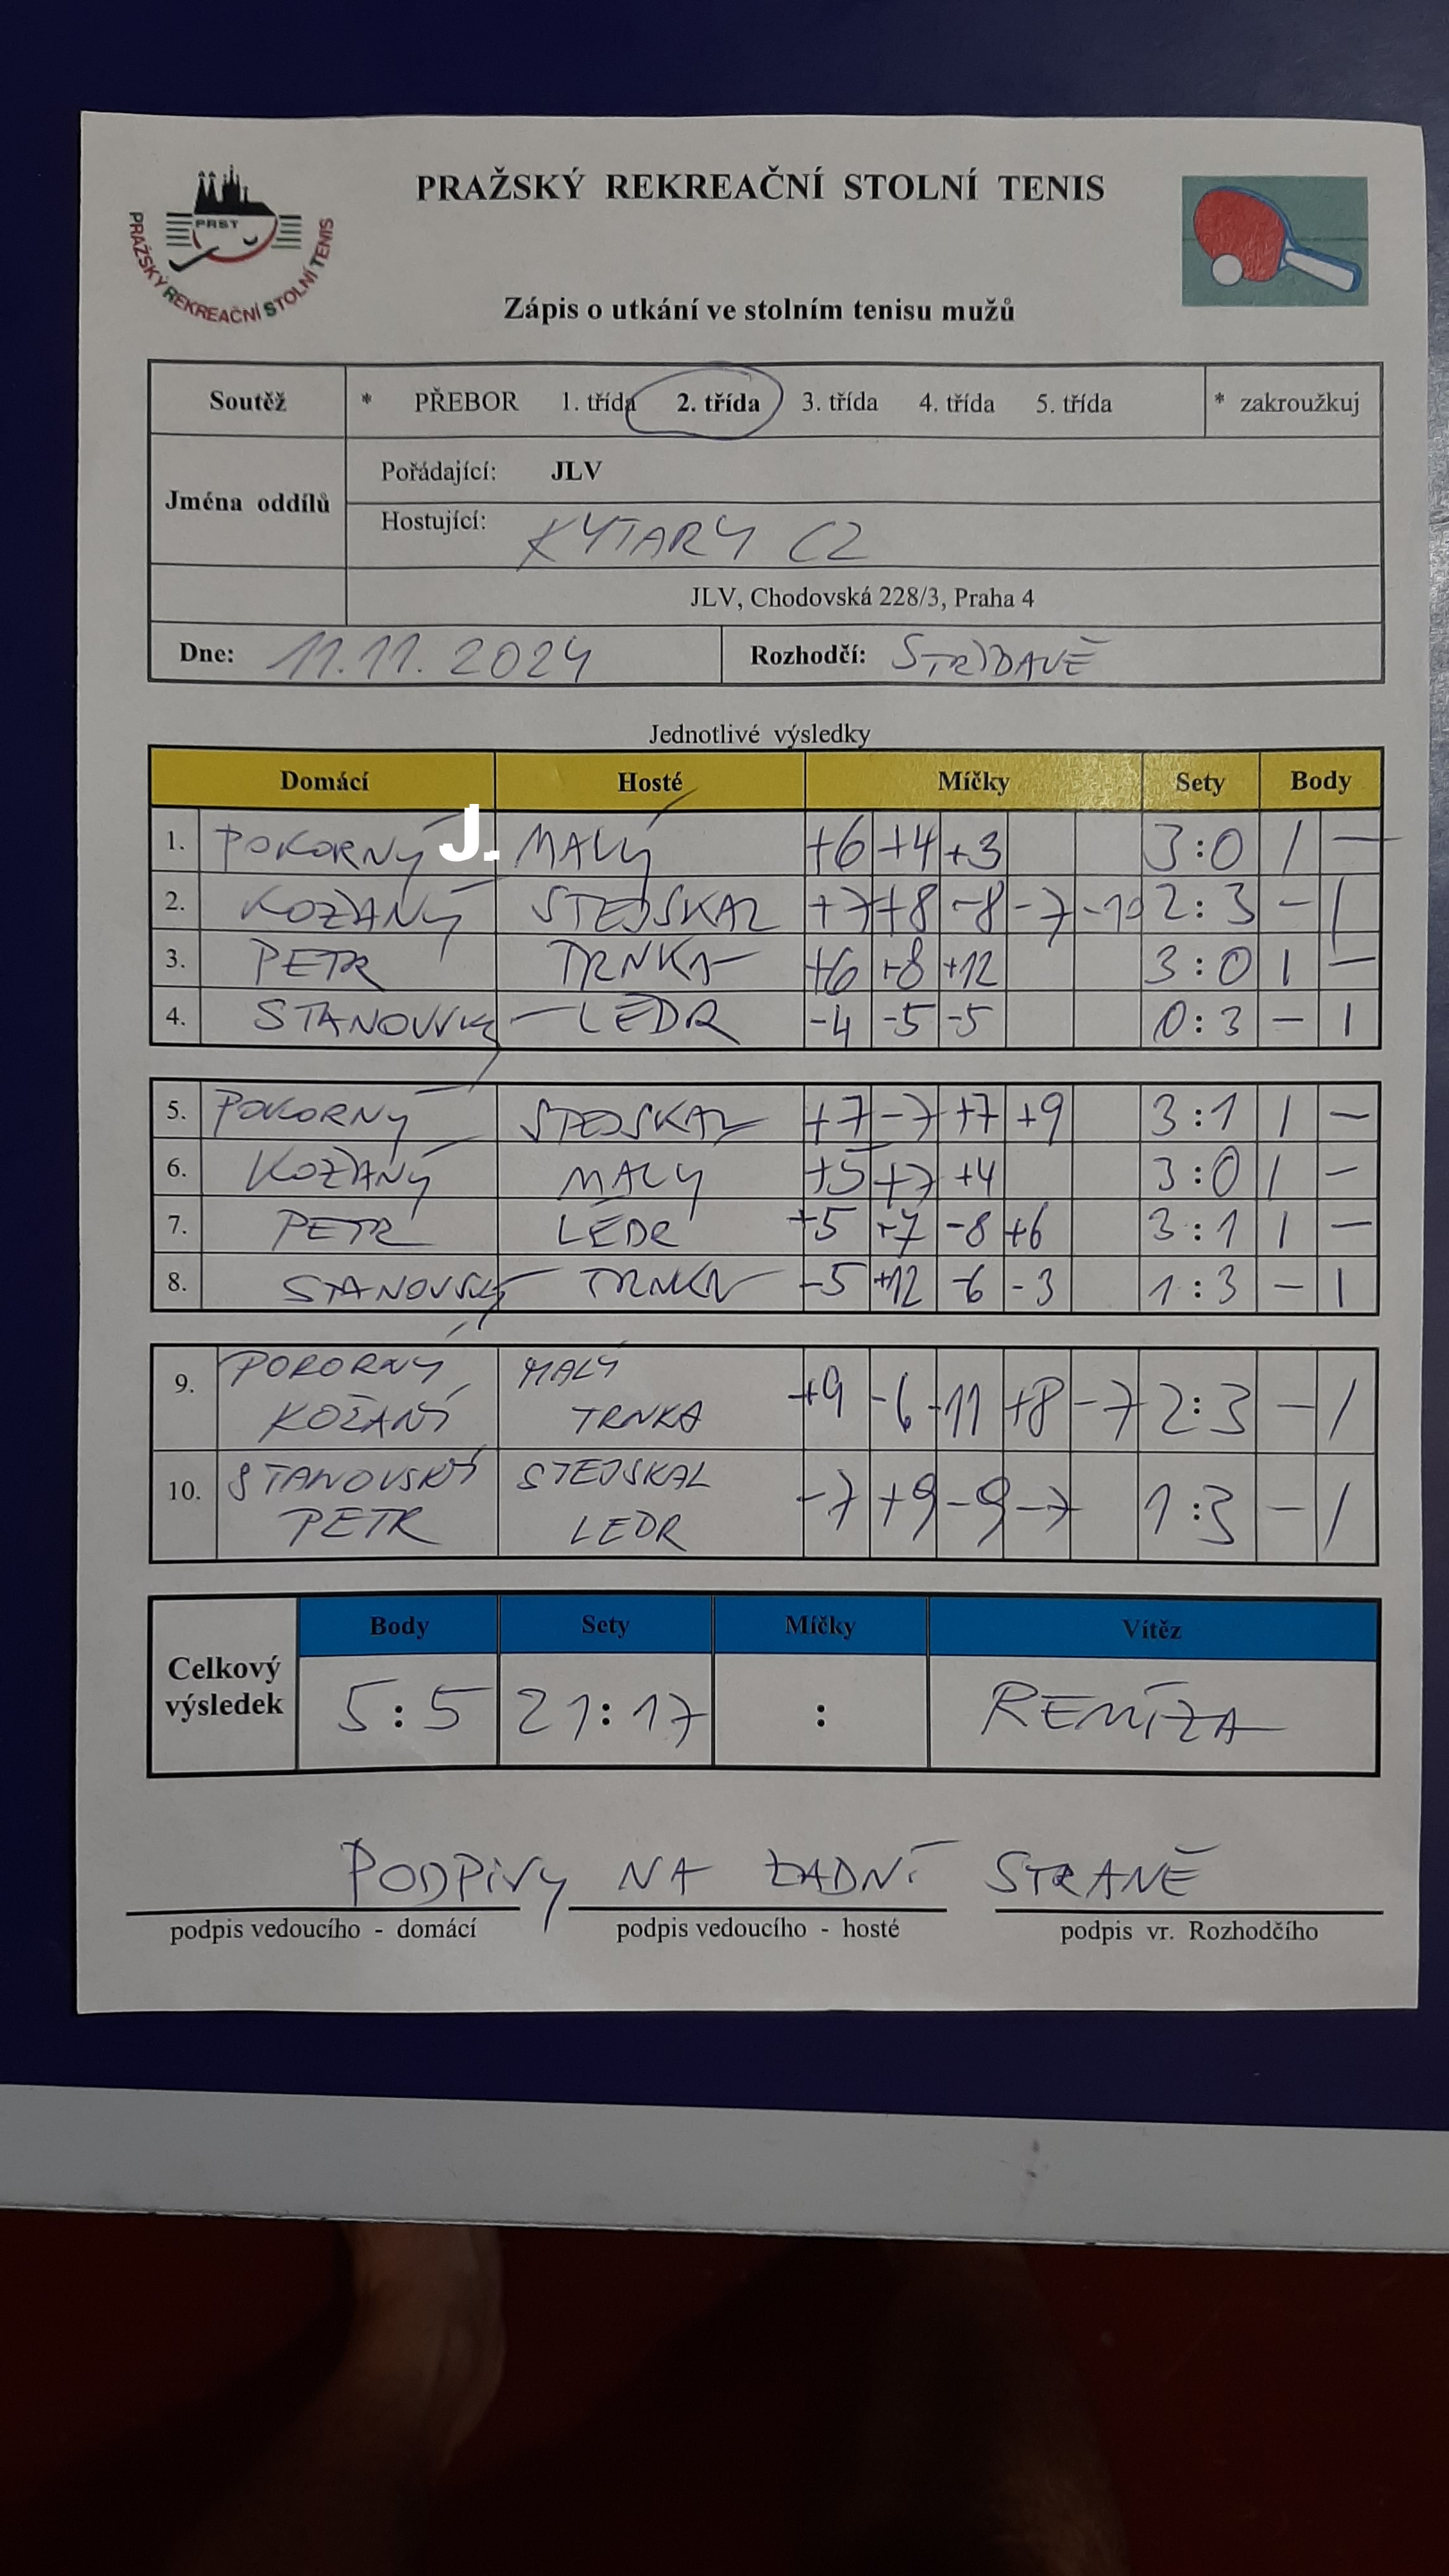 PRAŽSKÝ REKREAČNÍ STOLNÍ TENIS
PRST
PRAŽSKÝ REKREAČNÍ STOLNÍ TENIS
Zápis o utkání ve stolním tenisu mužů
Soutěž * PŘEBOR 1. třída 2. třída 3. třída 4. třída 5. třída * zakroužkuj
Jména oddílů
Pořádající: JLV
Hostující: KYTARY CZ
JLV, Chodovská 228/3, Praha 4
Dne: 11.11.2024 Rozhodčí: STŘÍDAVĚ
Jednotlivé výsledky
Domácí Hosté Míčky Sety Body
1. POKORNÝ J. MALÝ +6 +4 +3 3:0 1 –
2. KOŽANÝ STEJSKAL +7 +8 -8 -7 -10 2:3 – 1
3. PETR TRNKA +6 +8 +12 3:0 1 –
4. STANOVSKÝ LEDR -4 -5 -5 0:3 – 1
5. POKORNÝ STEJSKAL +7 -7 +7 +9 3:1 1 –
6. KOŽANÝ MALÝ +5 +7 +4 3:0 1 –
7. PETR LEDR +5 +7 -8 +6 3:1 1 –
8. STANOVSKÝ TRNKA -5 +12 -6 -3 1:3 – 1
9. POKORNÝ MALÝ +9 -6 -11 +8 -7 2:3 – 1
KOŽANÝ TRNKA
10. STANOVSKÝ STEJSKAL -7 +9 -9 -7 1:3 – 1
PETR LEDR
Celkový výsledek
Body Sety Míčky Vítěz
5:5 21:17 : REMÍZA
PODPISY NA ZADNÍ STRANĚ
podpis vedoucího - domácí podpis vedoucího - hosté podpis vr. Rozhodčího